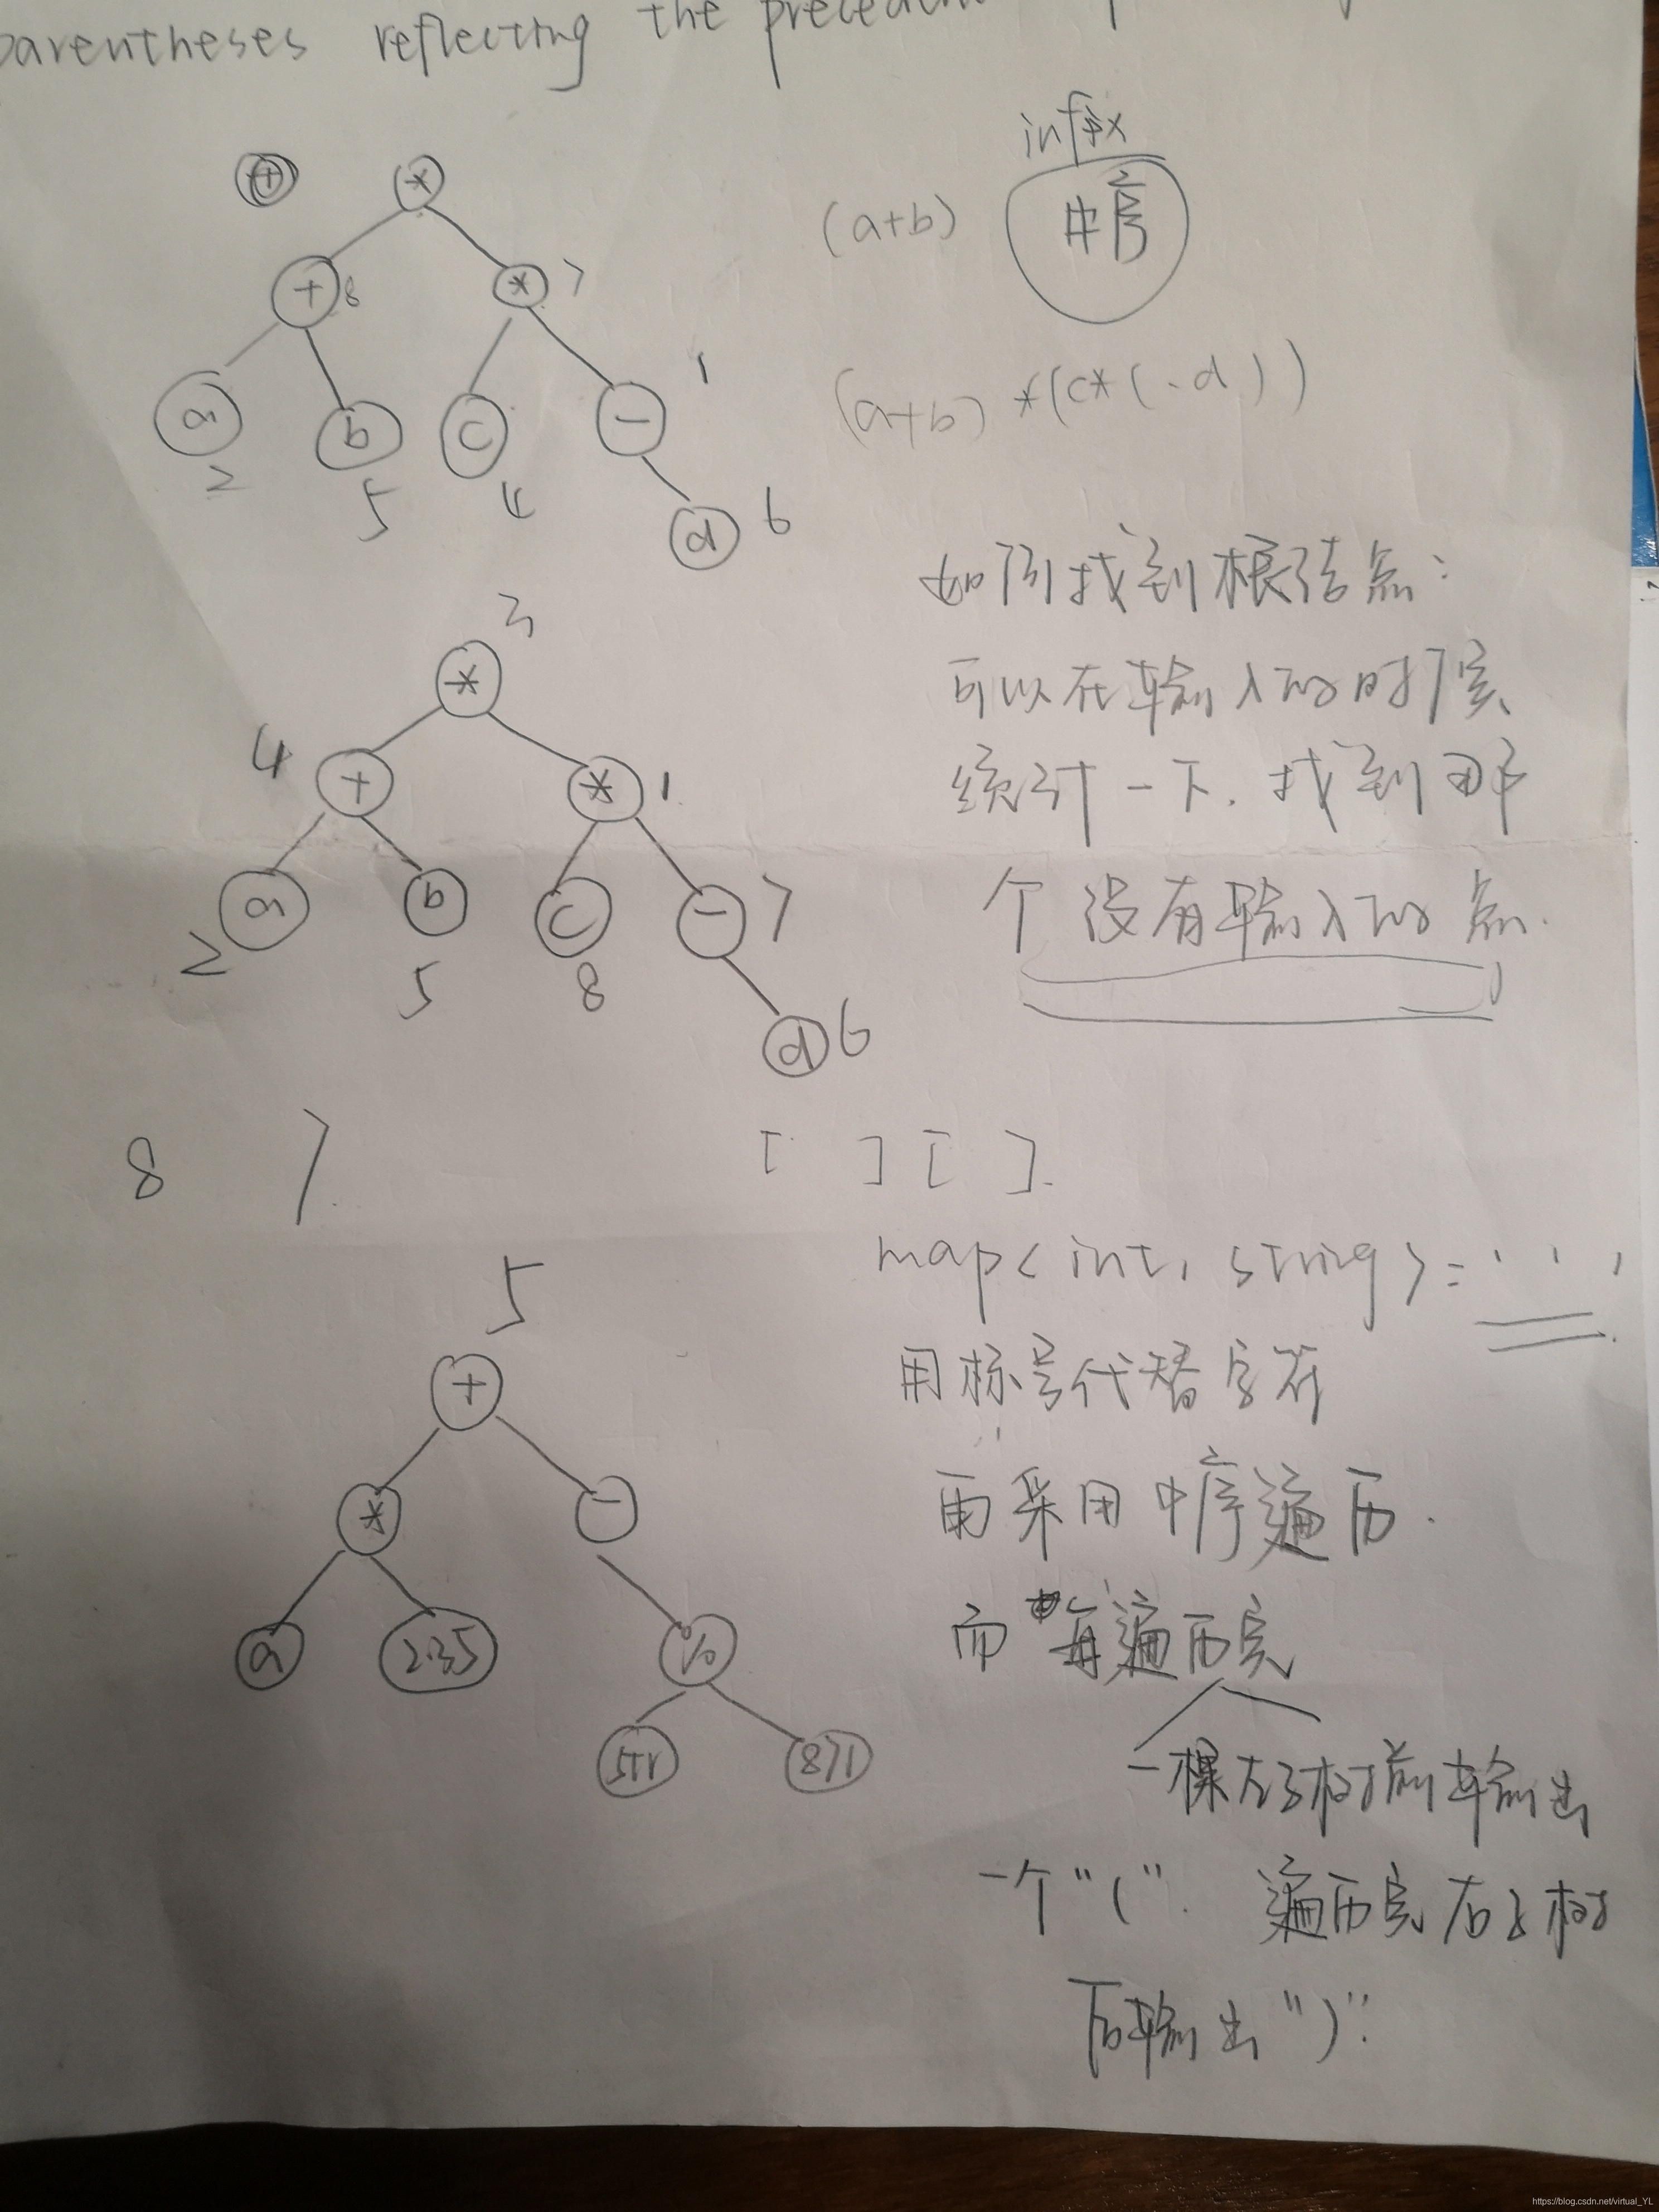 parentheses reflecting the
infix
中序
(a+b)
*
+ 8
* 7
a
2
b
5
c
4
-
1
d
6
(a+b)*(c*(-d))
如何找到根结点:
可以在输入的时候
统计一下.找到那
个没有输入的点.
3
*
4
+
* 1
a
2
b
5
c
8
- 7
d 6
8 7
[ ][ ].
map<int, string> =
用标号代替字符
再采用中序遍历.
而每遍历完
一棵左子树前输出
一个"(". 遍历完右子树
后输出")".
5
+
*
-
a
2.35
%
str
871
https://blog.csdn.net/virtual_YL